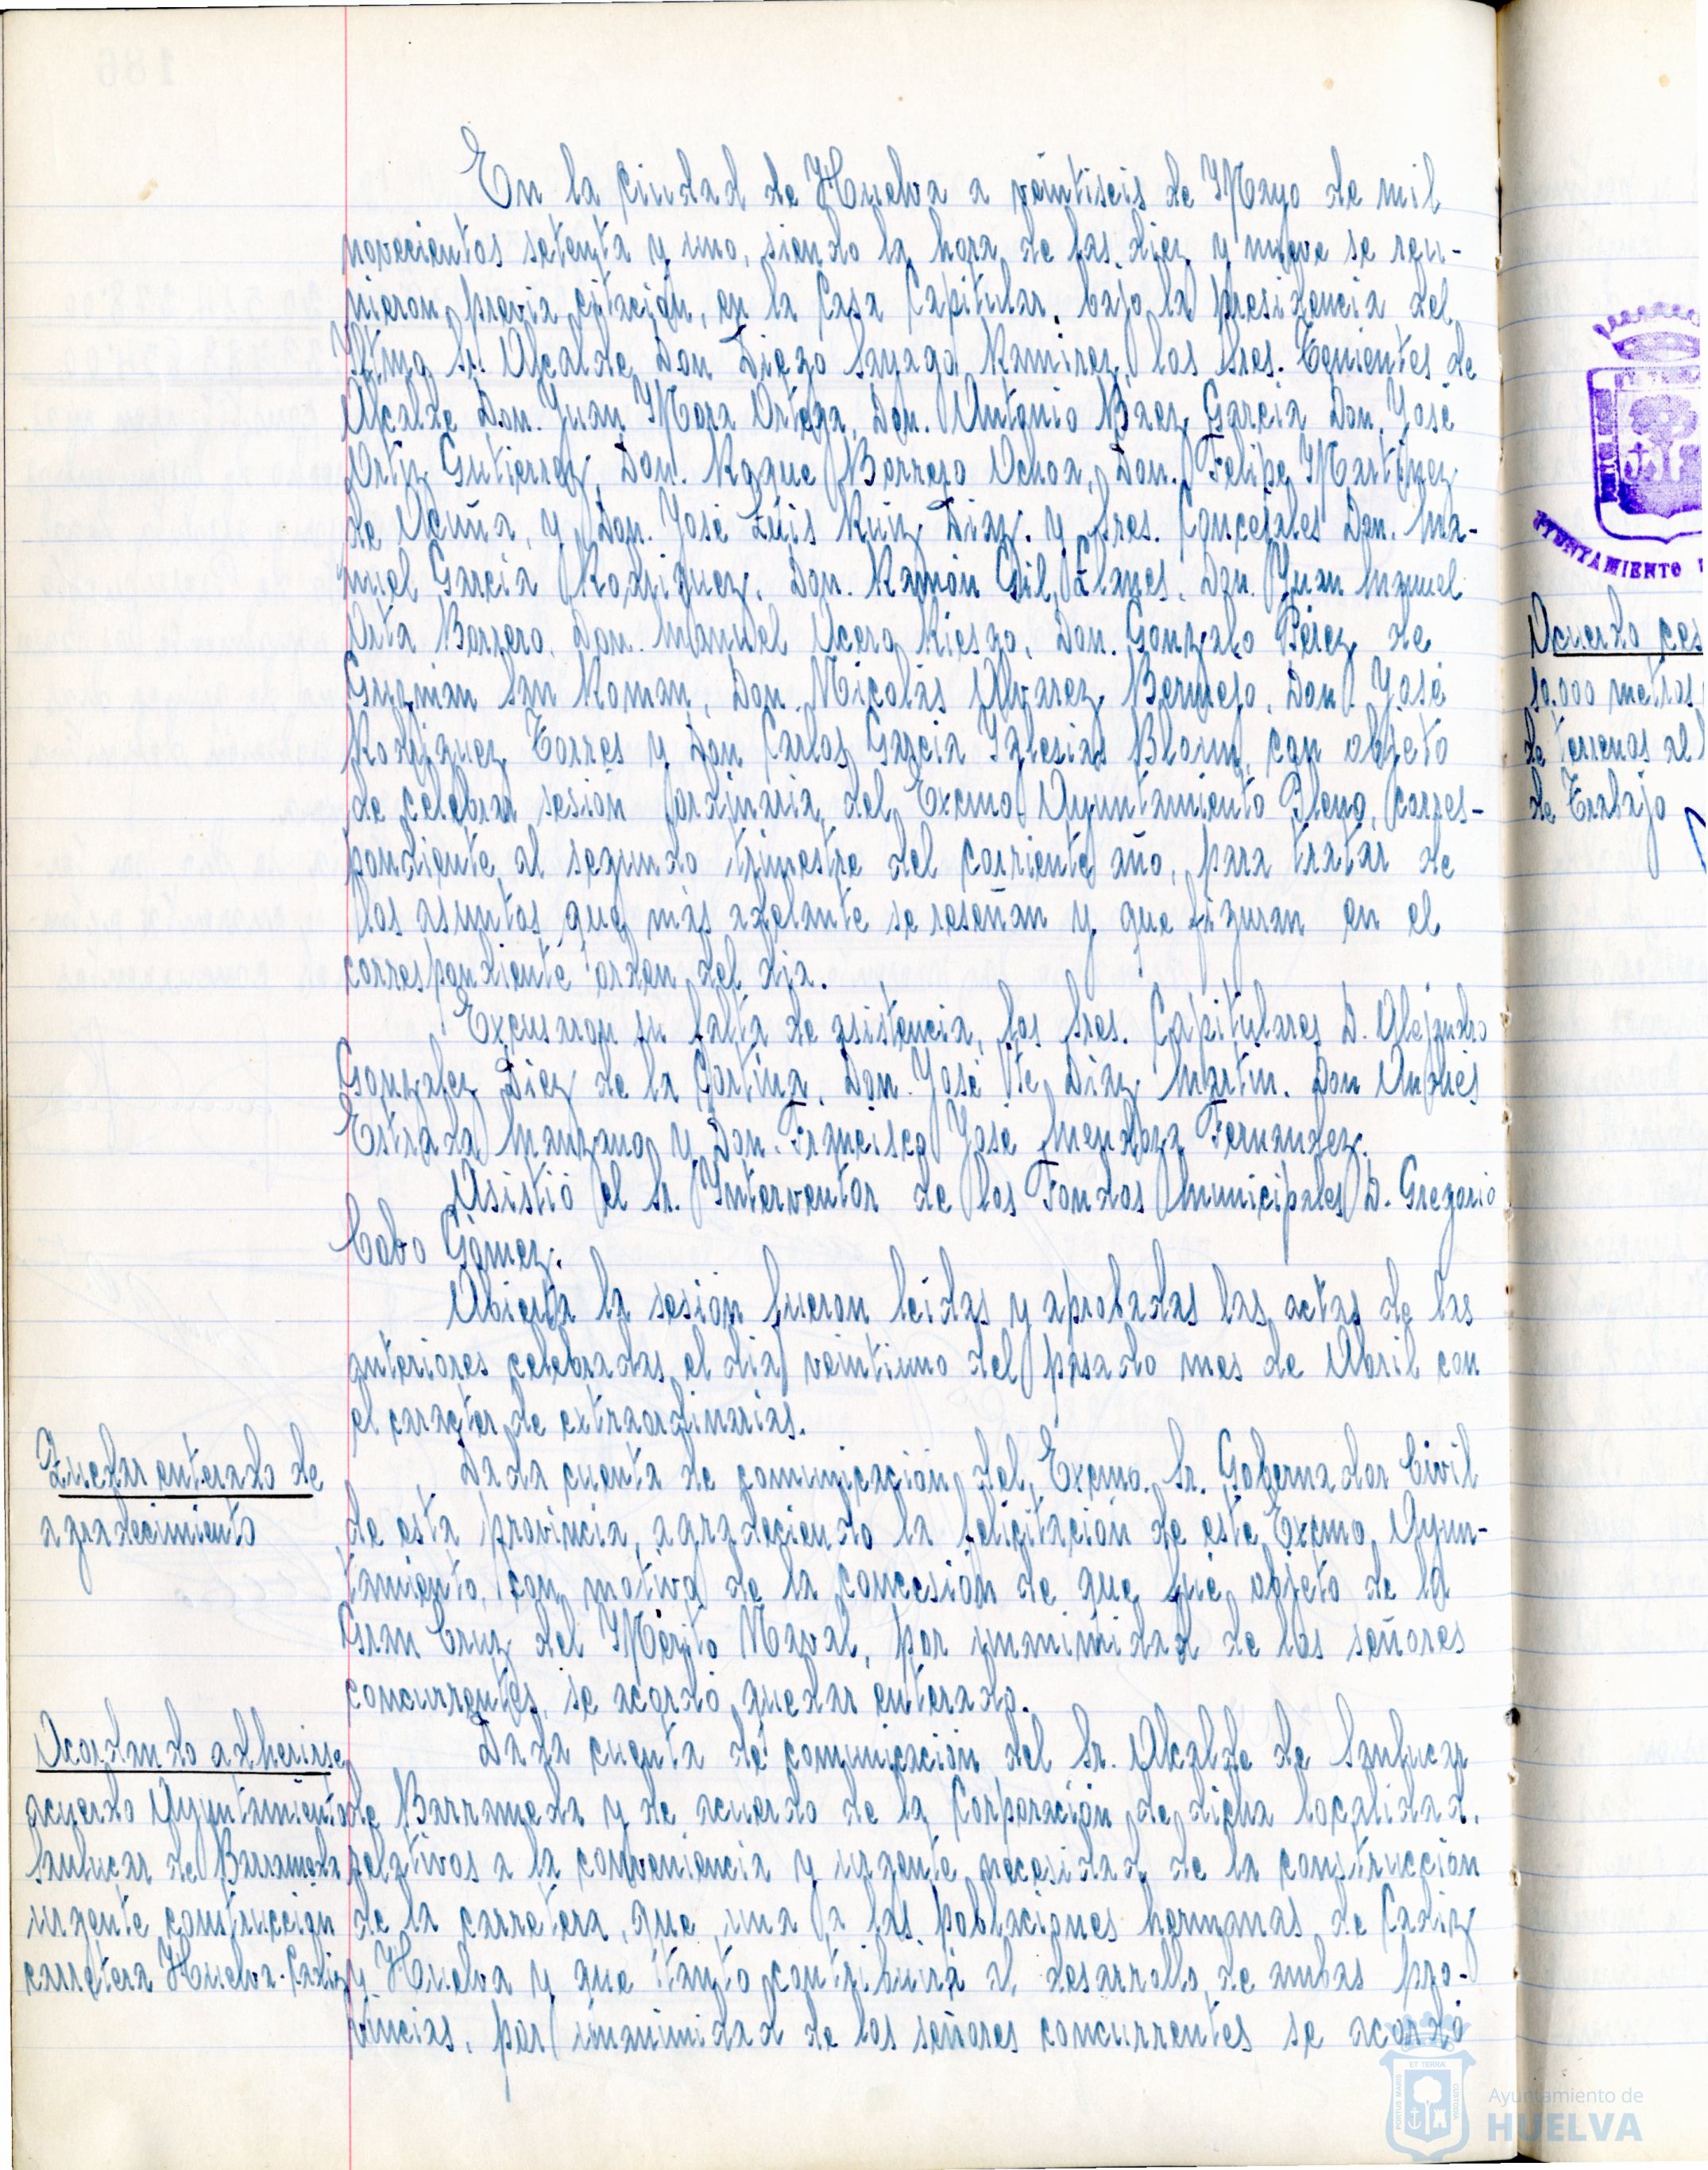 En la Ciudad de Huelva a veintiseis de Mayo de mil
novecientos setenta y uno, siendo la hora de las diez y nueve se reu-
nieron previa citación, en la Casa Capitular, bajo la presidencia del
Iltmo Sr. Alcalde Don Diego Sayago Ramirez, los Sres. Tenientes de
Alcalde Don. Juan Mora Ortega, Don. Antonio Baez Garcia Don. José
Ortiz Gutierrez, Don. Roque Borrero Ochoa, Don. Felipe Martinez
de Acuña, y Don. José Luis Ruiz Diaz. y Sres. Concejales Don. Ma-
nuel Garcia Rodriguez, Don. Ramón Gil Llanes, Don. Juan Manuel
Orta Borrero, Don. Manuel Acero Riesgo, Don. Gonzalo Pérez de
Guzmán San Roman, Don. Nicolás Alvarez Bermejo, Don. José
Rodriguez Torres y Don Carlos Garcia Iglesias Bloum, con objeto
de celebrar sesión ordinaria del Excmo Ayuntamiento Pleno, corres-
pondiente al segundo trimestre del corriente año, para tratar de
los asuntos que más adelante se reseñan y que figuran en el
correspondiente orden del dia.
Excusaron su falta de asistencia, los Sres. Capitulares D. Alejandro
Gonzalez Diez de la Cortina, Don. José Diaz Martin. Don Andrés
Estrada Manzano y Don. Francisco José Mendoza Fernandez.
Asistió el Sr. Interventor de los Fondos Municipales D. Gregorio
Cabo Gómez.
Abierta la sesión fueron leidas y aprobadas las actas de las
anteriores celebradas el dia veintiuno del pasado mes de Abril con
el caracter de extraordinarias.
Quedar enterado de
agradecimiento
Dada cuenta de comunicación del Excmo. Sr. Gobernador Civil
de esta provincia, agradeciendo la felicitación de este Excmo Ayun-
tamiento, con motivo de la concesión de que fue objeto de la
Gran Cruz del Mérito Naval, por unanimidad de los señores
concurrentes, se acordó quedar enterado.
Acordando adherirse
acuerdo Ayuntamiento
Sanlucar de Barrameda
urgente construccion
carretera Huelva-Cadiz
Dada cuenta de comunicación del Sr. Alcalde de Sanlucar
de Barrameda y de acuerdo de la Corporación de dicha localidad,
relativos a la conveniencia y urgente necesidad de la construcción
de la carretera, que una a las poblaciones hermanas de Cadiz
y Huelva y que tanto contribuirá al desarrollo de ambas pro-
vincias, por unanimidad de los señores concurrentes se acordó
AYUNTAMIENTO
Acuerdo ces
10.000 metros
de terrenos al
de Trabajo
Ayuntamiento de
HUELVA